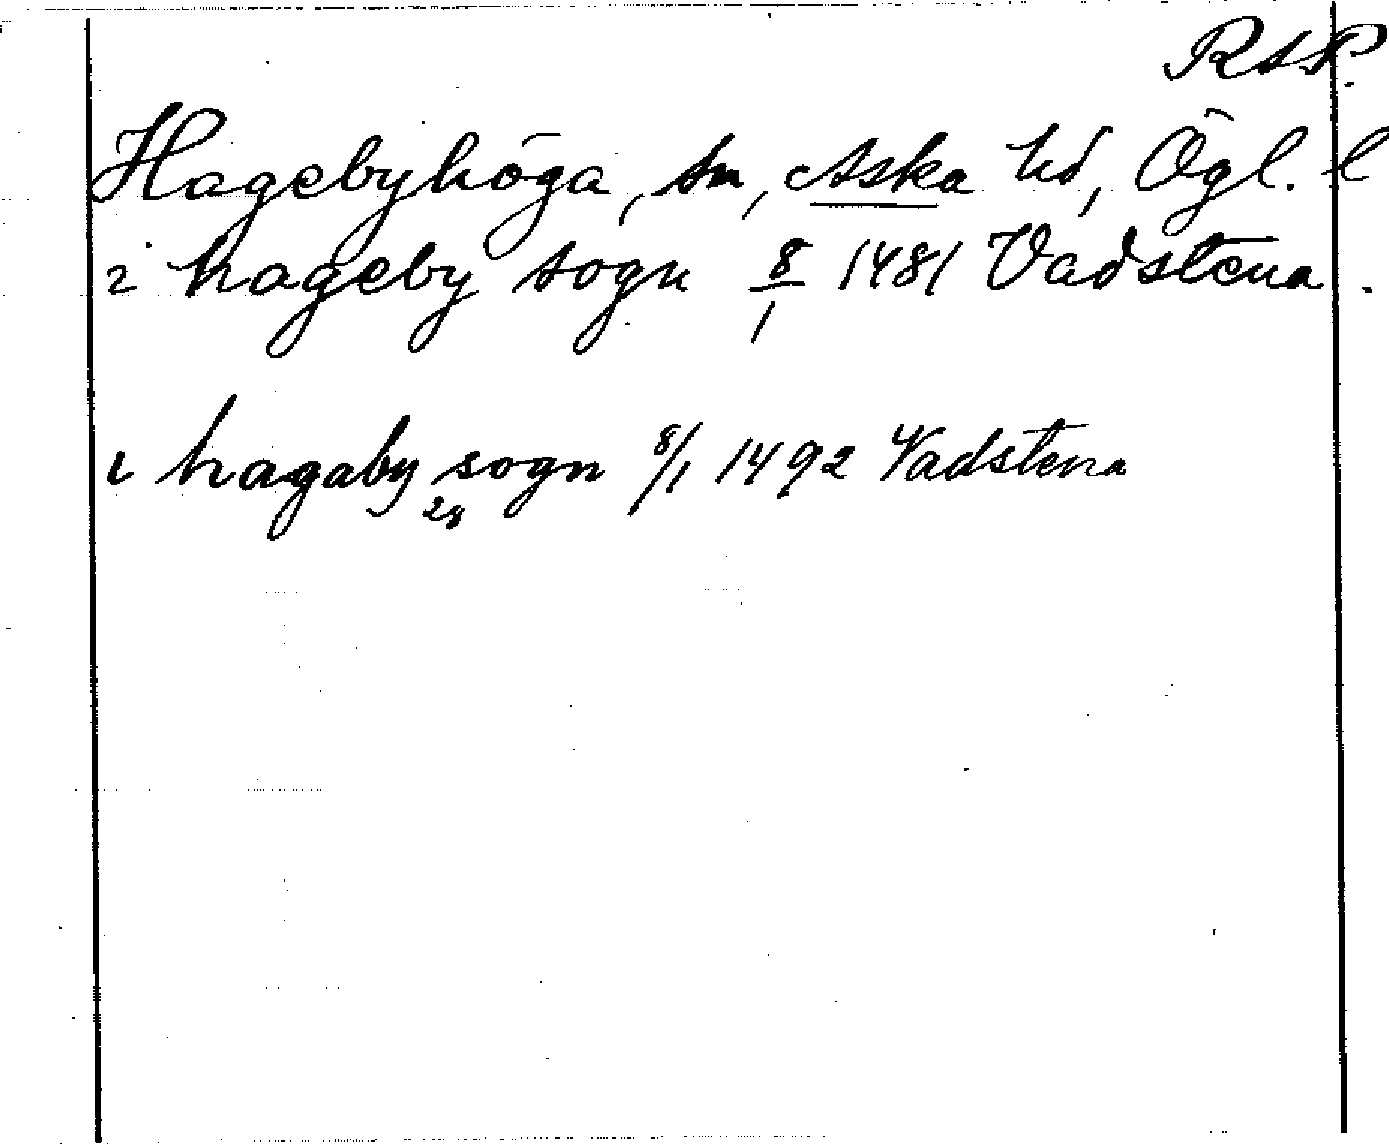 RAP.
Hagebyhöga, sn, Aska hd, Ögl. l
i hageby sogn 8/1 1481 Vadstena.
i hagaby sogn 8/1 1492 Vadstena
28